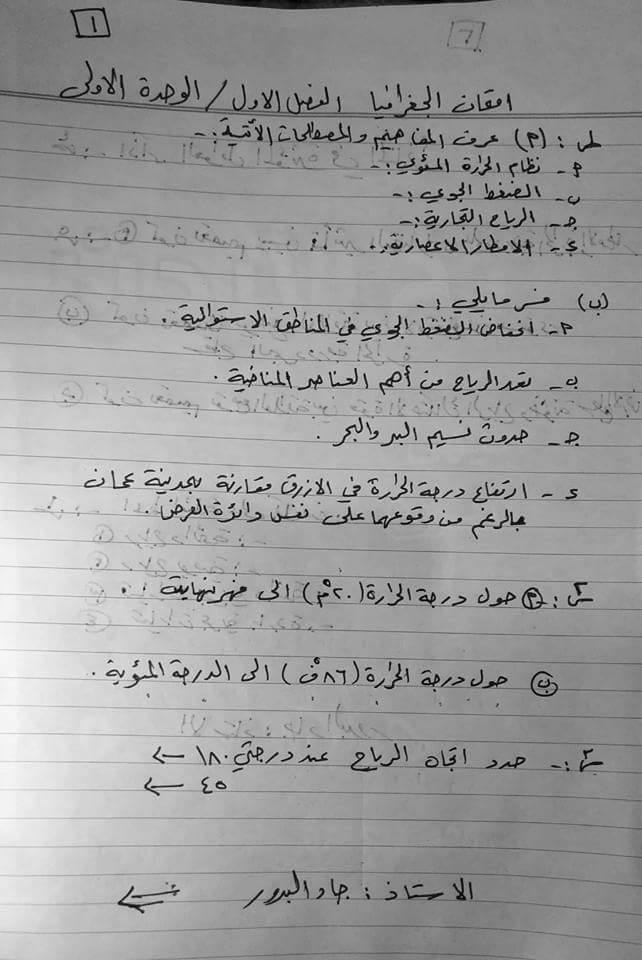 ١
امتحان الجغرافيا الفصل الاول / الوحدة الاولى
س١: (أ) عرف المفاهيم والمصطلحات الآتية:-
أ- نظام الحرارة المئوي:-
ب- الضغط الجوي:-
جـ- الرياح التجارية:-
د- الامطار الاعصارية:-
(ب) فسر ما يلي:-
أ- انخفاض الضغط الجوي في المناطق الاستوائية.
ب- تعد الرياح من أهم العناصر المناخية.
جـ- حدوث نسيم البر والبحر.
د- ارتفاع درجة الحرارة في الازرق مقارنة بمدينة عمان
بالرغم من وقوعهما على نفس دائرة العرض.
س٢: (أ) حول درجة الحرارة (٢٠°م) الى فهرنهايتة:.
(ب) حول درجة الحرارة (٨٦°ف) الى الدرجة المئوية.
س٣:- حدد اتجاه الرياح عند درجتي ١٨٠ ←
٤٥ ←
الاستاذ: جاد البدور